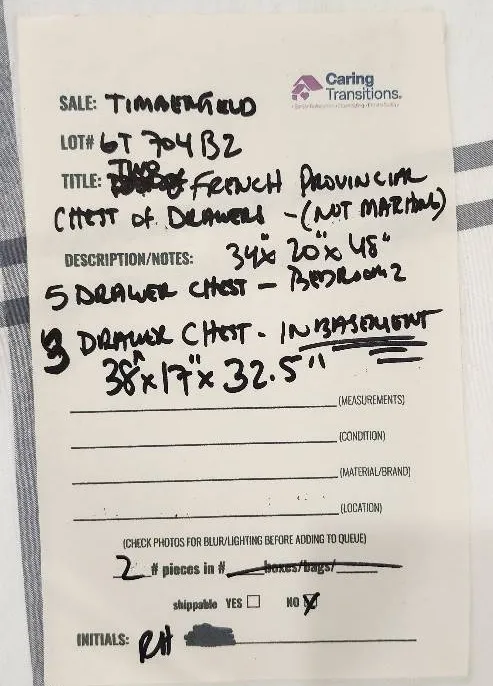 Caring
Transitions®
SALE: TIMBERFIELD
LOT# 6T 704 B2
TITLE: TWO FRENCH PROVINCIAL
CHEST of DRAWERS - (NOT MATCHING)
DESCRIPTION/NOTES: 34" x 20" x 48"
5 DRAWER CHEST - BEDROOM 2
3 DRAWER CHEST - IN BASEMENT
38" x 17" x 32.5"
(MEASUREMENTS)
(CONDITION)
(MATERIAL/BRAND)
(LOCATION)
(CHECK PHOTOS FOR BLUR/LIGHTING BEFORE ADDING TO QUEUE)
2 # pieces in # boxes/bags/
shippable YES ☐ NO ☒
INITIALS: RH